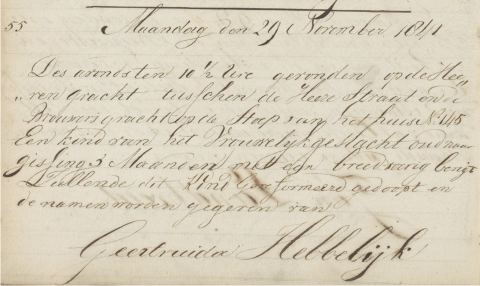 55
Maandag den 29 November 1841
Des avondsten 10½ Ure gevonden op de Hee,
"ren gracht tusschen de Heere Straat en de
Brouwersgracht op de Stoep van het huis No 145
Een kind van het Vrouwelijk geslacht oud naar
gissing 3 Maanden met een breedvoerig berigt
Zullende dit Kind Gereformeerd gedoopt en
de namen worden gegeven van
Geertruida Hebbelijk